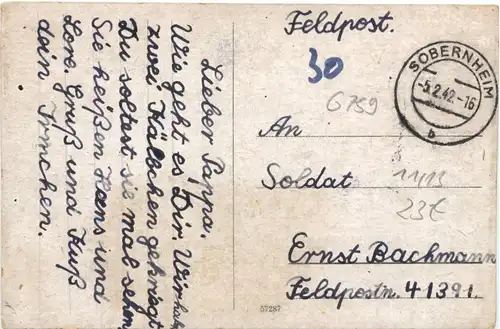 Lieber Pappa.
Wie geht es Dir. Wir haben
zwei Kälbchen gekriegt
Du soltest sie mal sehen
Sie heißen Hans und
Lore. Gruß und Kuß
dein Irmchen.
Feldpost.
30
SOBERNHEIM
-5.2.42.-16
b
6759
An
Soldat
11/13
23€
Ernst Bachmann
Feldpostn. 41391.
57287